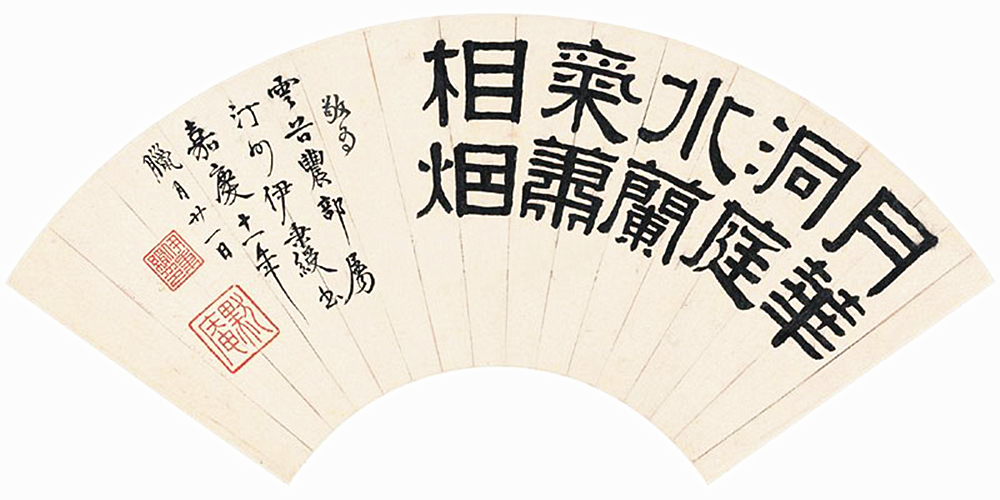 月華
洞庭
水蘭
氣蕭
相烟
敬為
雲谷農部屬
汀州伊秉綬書
嘉慶十一年
臘月廿一日